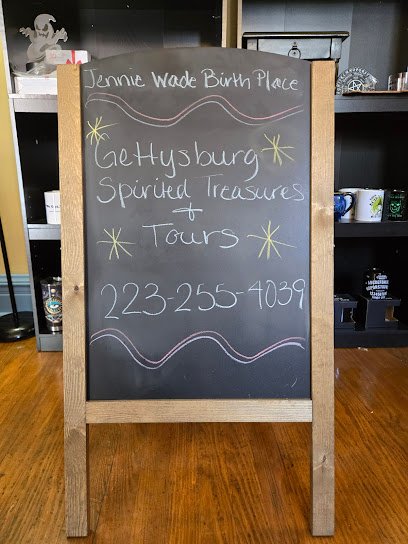 Jennie Wade Birth Place
Gettysburg
Spirited Treasures
+
Tours
223-255-4039